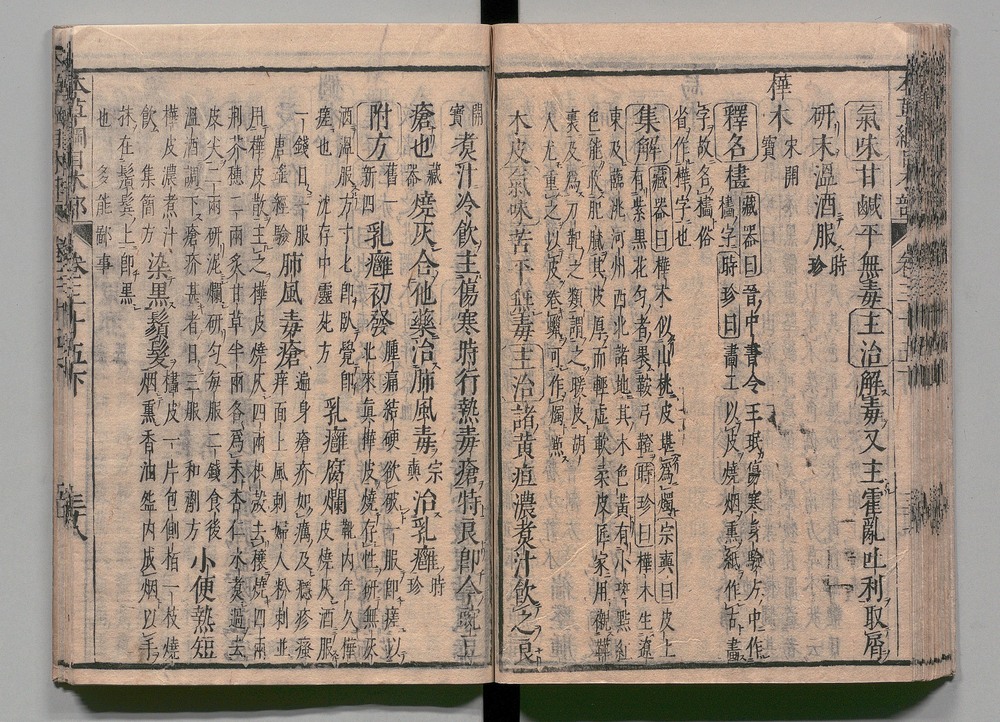 氣味甘鹹平無毒主治解毒又主霍亂吐利取屑
研末溫酒服時珍
樺木宋開寶
釋名𣛛藏器曰晉中書令王珉傷寒身驗方中作
𣛛字時珍曰畫工以皮燒烟熏紙作古畫
字故名𣛛俗
省作樺字也
集解藏器曰樺木似山桃皮堪爲燭宗奭曰皮上
有紫黑花勻者裹鞍弓鐙時珍曰樺木生遼
東及臨洮河州西北諸地其木色黃有小斑點紅
色能收肥膩其皮厚而輕虛軟柔皮匠家用襯鞾
裏及爲刀靶之類謂之暖皮胡
人尤重之以皮卷蠟可作燭燃
木皮氣味苦平無毒主治諸黃疸濃煮汁飲之良
開寶煮汁冷飲主傷寒時行熱毒瘡特良卽今豌豆
瘡也藏器燒灰合他藥治肺風毒宗奭治乳癰時珍
附方舊一新四乳癰初發腫痛結硬欲破一服卽瘥以
北來真樺皮燒存性研無灰
酒溫服方寸匕卽臥覺卽
瘥也沈存中靈苑方乳癰腐爛靴內年久樺
皮燒灰酒服
一錢日一服
唐瑤經驗肺風毒瘡遍身瘡疥如癘及癮疹瘙
癢面上風刺婦人粉刺並
用樺皮散主之樺皮燒灰四兩枳殼去穰燒四兩
荆芥穗二兩炙甘草半兩各爲末杏仁水煮過去
皮尖二兩研泥爛研勻每服二錢食後
溫酒調下瘡疥甚者日三服和劑方小便熱短
樺皮濃煮汁
飲集簡方染黑鬚髮𣛛皮一片包側栢一枝燒
烟熏香油盌內成烟以手
抹在鬚鬢上卽黑
也多能鄙事
本草綱目木部
卷三十五下